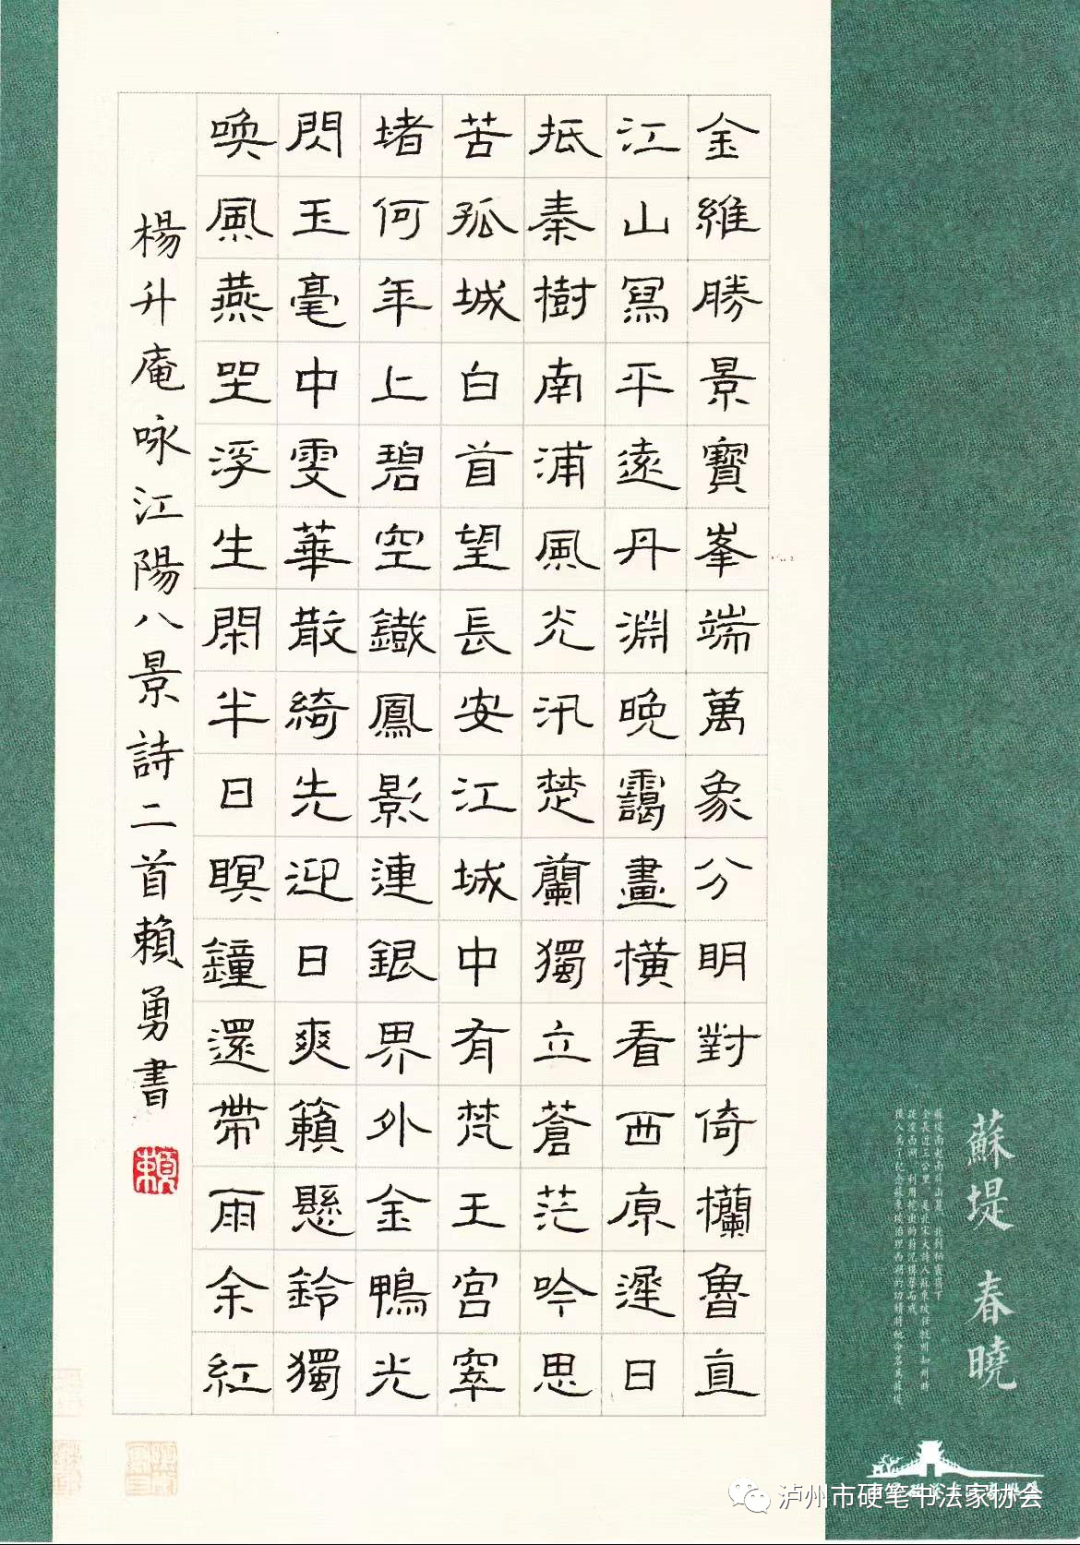 金維勝景寶峯端萬象分明對倚欄魯直
江山冩平遠丹淵晚靄畫橫看西原遲日
抵秦樹南浦風光汛楚蘭獨立蒼茫吟思
苦孤城白首望長安江城中有梵王宮窣
堵何年上碧空鐵鳳影連銀界外金鴨光
閃玉毫中雯華散綺先迎日爽籟懸鈴獨
喚風燕坐浮生閑半日暝鐘還帶雨余紅
楊升庵咏江陽八景詩二首賴勇書
賴
蘇堤 春曉
泸州市硬笔书法家协会